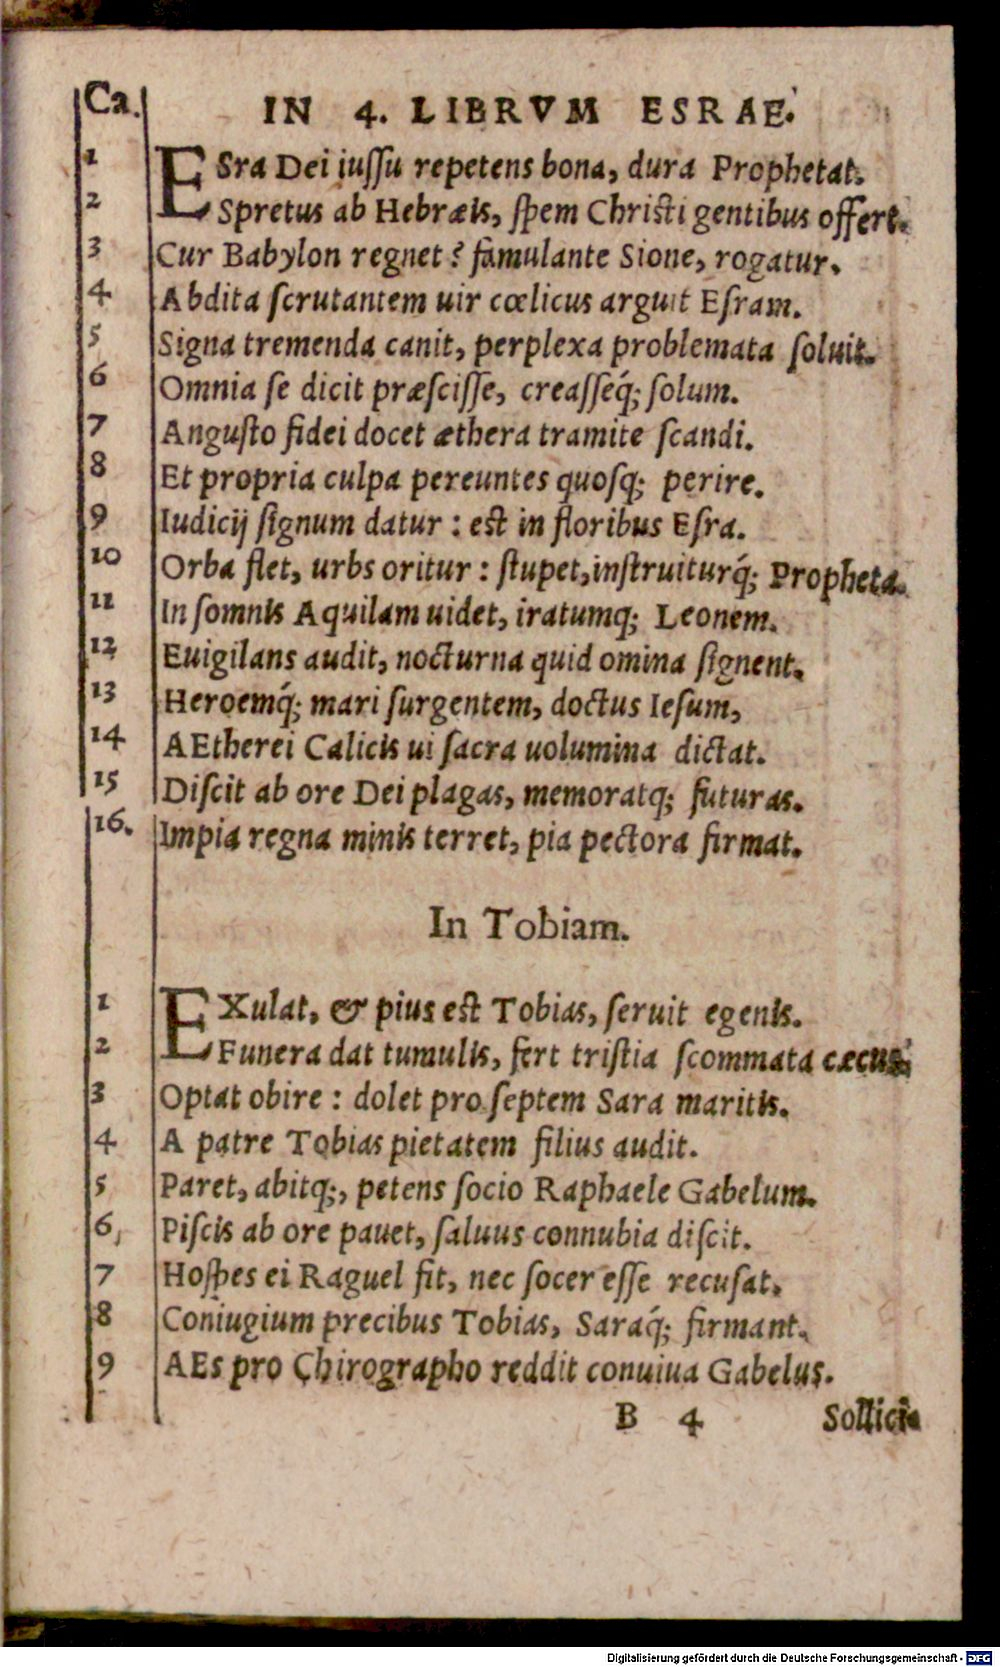 Ca.
IN 4. LIBRVM ESRAE.
1 ESra Dei iuſſu repetens bona, dura Prophetat.
2 Spretus ab Hebræis, ſpem Chriſti gentibus offert.
3 Cur Babylon regnet? famulante Sione, rogatur.
4 Abdita ſcrutantem uir cœlicus arguit Eſram.
5 Signa tremenda canit, perplexa problemata ſoluit.
6 Omnia ſe dicit præſciſſe, creaſſeq́; ſolum.
7 Anguſto fidei docet æthera tramite ſcandi.
8 Et propria culpa pereuntes quoſq; perire.
9 Iudicij ſignum datur: eſt in floribus Eſra.
10 Orba flet, urbs oritur: ſtupet, inſtruiturq́; Propheta.
11 In ſomnis Aquilam uidet, iratumq; Leonem.
12 Euigilans audit, nocturna quid omina ſignent.
13 Heroemq́; mari ſurgentem, doctus Ieſum,
14 AEtherei Calicis ui ſacra uolumina dictat.
15 Diſcit ab ore Dei plagas, memoratq; futuras.
16. Impia regna minis terret, pia pectora firmat.
In Tobiam.
1 EXulat, & pius eſt Tobias, ſeruit egenis.
2 Funera dat tumulis, fert triſtia ſcommata cæcus.
3 Optat obire: dolet pro ſeptem Sara maritis.
4 A patre Tobias pietatem filius audit.
5 Paret, abitq;, petens ſocio Raphaele Gabelum.
6 Piſcis ab ore pauet, ſaluus connubia diſcit.
7 Hoſpes ei Raguel fit, nec ſocer eſſe recuſat.
8 Coniugium precibus Tobias, Saraq́; firmant.
9 AEs pro Chirographo reddit conuiua Gabelus.
B 4 Sollici-
Digitalisierung gefördert durch die Deutsche Forschungsgemeinschaft - DFG